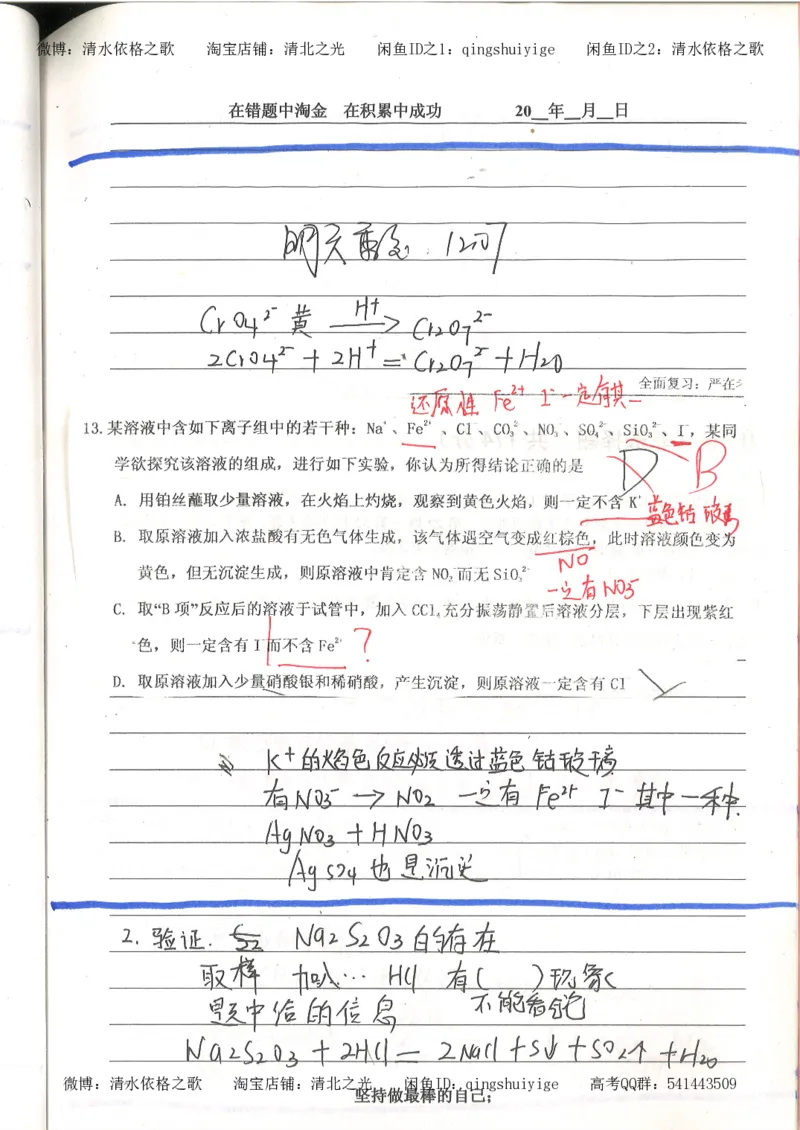 微博：清水依格之歌 淘宝店铺：清北之光 闲鱼ID之1：qingshuiyige 闲鱼ID之2：清水依格之歌
在错题中淘金 在积累中成功 20__年__月__日
明天
CrO₄²⁻ 黄 H⁺→ Cr₂O₇²⁻
2CrO₄²⁻ + 2H⁺ = Cr₂O₇²⁻ + H₂O
全面复习：严在
还原性 Fe²⁺ I⁻ 一定有其一
13.某溶液中含如下离子组中的若干种：Na⁺、Fe²⁺、Cl⁻、CO₃²⁻、NO₃⁻、SO₄²⁻、SiO₃²⁻、I⁻，某同
学欲探究该溶液的组成，进行如下实验，你认为所得结论正确的是
D B
A. 用铂丝蘸取少量溶液，在火焰上灼烧，观察到黄色火焰，则一定不含 K⁺
蓝色钴玻璃
B. 取原溶液加入浓盐酸有无色气体生成，该气体遇空气变成红棕色，此时溶液颜色变为
NO
黄色，但无沉淀生成，则原溶液中肯定含 NO₃⁻而无 SiO₃²⁻
一定有NO₃⁻
C. 取“B 项”反应后的溶液于试管中，加入 CCl₄充分振荡静置后溶液分层，下层出现紫红
色，则一定含有 I⁻而不含 Fe²⁺ ？
D. 取原溶液加入少量硝酸银和稀硝酸，产生沉淀，则原溶液一定含有 Cl⁻
K⁺的焰色反应必须透过蓝色钴玻璃
有NO₃⁻ → NO₂ 一定有 Fe²⁺ I⁻ 其中一种.
AgNO₃ + HNO₃
AgSO₄ 也是沉淀
2. 验证. Na₂S₂O₃的存在
取样 加入… HCl 有( )现象
题中给的信息 不能看
Na₂S₂O₃ + 2HCl = 2NaCl + S↓ + SO₂↑ + H₂O
微博：清水依格之歌 淘宝店铺：清北之光 闲鱼ID：qingshuiyige 高考QQ群：541443509
坚持做最棒的自己；